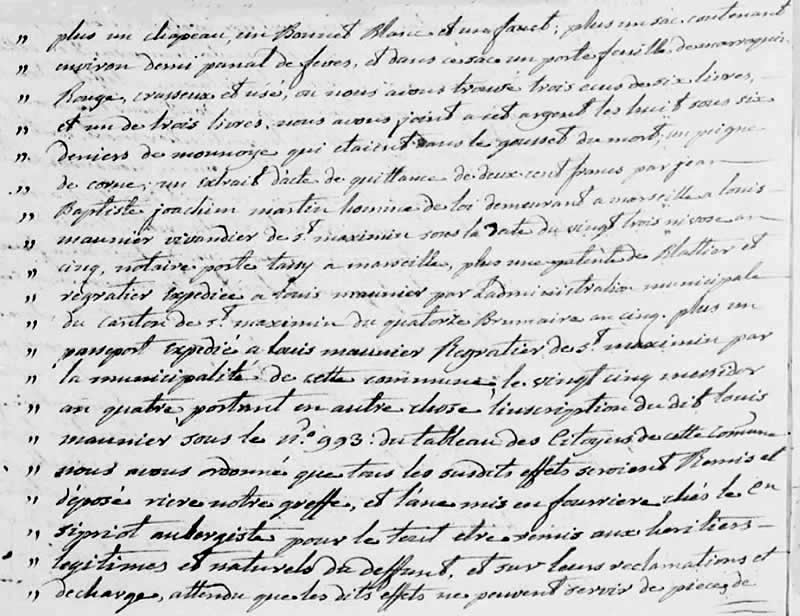 " plus un chapeau, un Bonnet Blanc et un fouet; plus un sac contenant
" environ demi panal de feves, et dans ce sac un porte feuille de marroquin
" Rouge, crasseux et usé, ou nous avons trouvé trois ecus de six livres,
" et un de trois livres. nous avons joint a cet argent les huit sous six
" deniers de monnoye qui etaient dans le gousset du mort; un peigne
" de corne; un extrait d'acte de quittance de deux cent francs par jean
" Baptiste joachim martin homme de loi demeurant a marseille a louis
" maunier vivandier de st. maximin sous la date du vingt trois nivose an
" cinq, notaire porte tassy a marseille, plus une patente de Blattier et
" regratier Expediée a louis maunier par l'administration municipale
" du canton de st. maximin du quatorze Brumaire an cinq. plus un
" passeport Expedié a louis maunier Regratier de st. maximin par
" la municipalité de cette commune, le vingt cinq messidor
" an quatre portant en autre chose l'inscription du dit louis
" maunier sous le no. 993: du tableau des Citoyens de cette Comune
" nous avons ordonné que tous les susdits effets seroient Remis et
" déposé riere notre greffe, et l'ane mis en fourriere chés le Cen
" sipriot aubergiste pour le tout etre remis aux heritiers
" legitimes et naturels du deffunt, et sur leurs reclamations et
" decharge, attendu que les dits effets ne peuvent servir de pieces de